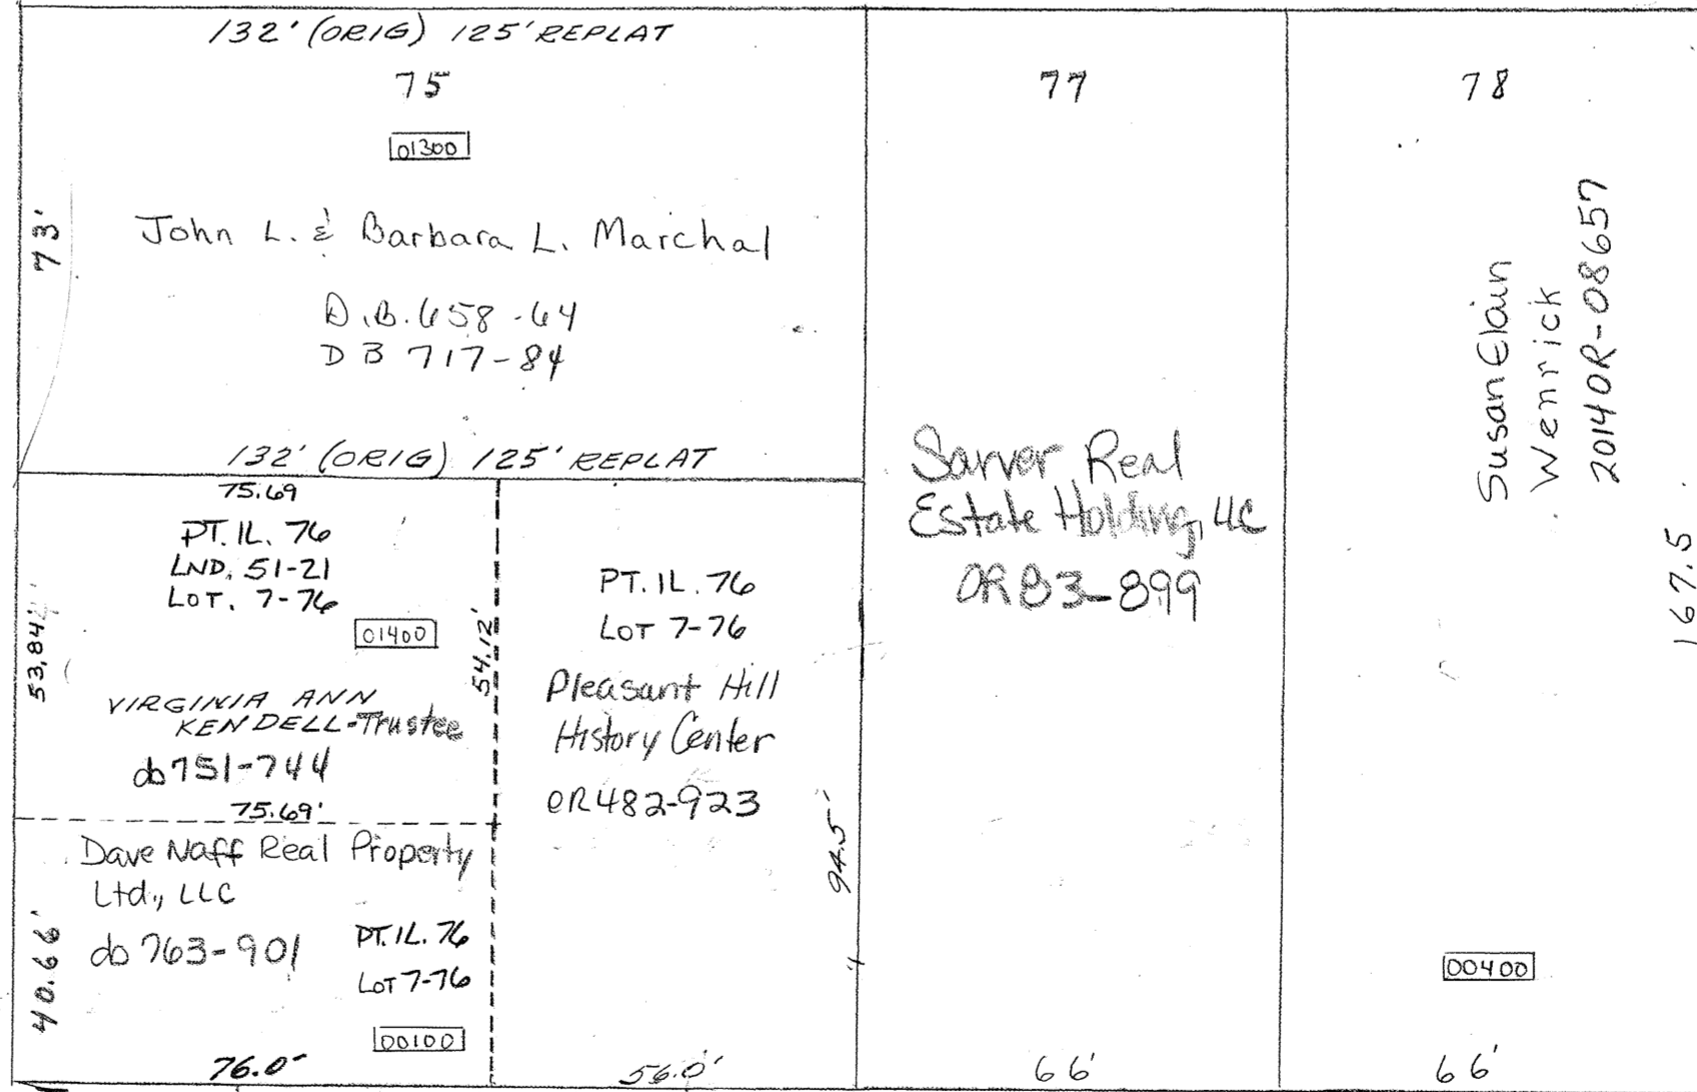 132' (ORIG) 125' REPLAT
75
01300
73'
John L. & Barbara L. Marchal
D.B. 658-64
DB 717-84
132' (ORIG) 125' REPLAT
75.69
PT. IL. 76
LND. 51-21
LOT. 7-76
01400
53.84'
54.12'
VIRGINIA ANN
KENDELL-Trustee
db 751-744
75.69'
Dave Naff Real Property
Ltd., LLC
db 763-901
PT. IL. 76
LOT 7-76
00100
40.66'
76.0'
PT. IL. 76
LOT 7-76
Pleasant Hill
History Center
OR482-923
94.5'
56.0'
77
Sarver Real
Estate Holding, LLC
ORB3-899
66'
78
Susan Elain
Wenrick
2014OR-08657
167.5
00400
66'